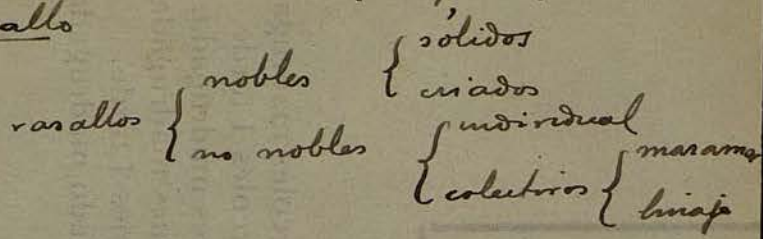 allo
vasallos { nobles { sólidos
criados
no nobles { individual
colectivos {
linaje